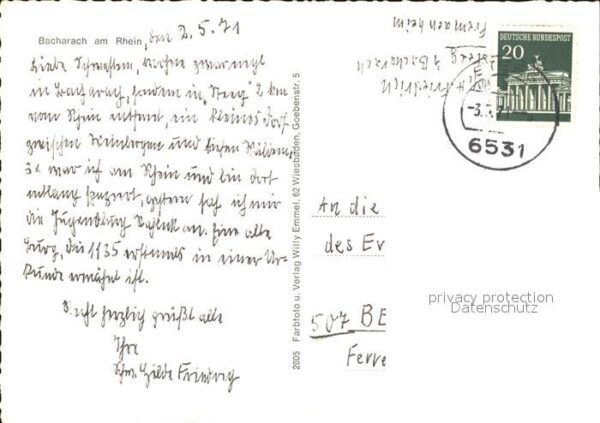 Bacharach am Rhein, den 2.5.71
Liebe Schwestern, wohne zwar nicht
in Bacharach, sondern in "Steeg" 2 km
vom Rhein entfernt, ein kleines Dorf
zwischen Weinbergen und hohen Wäldern,
3x war ich am Rhein und bin dort
entlang spaziert, gestern sah ich mir
die Jugendburg Stahleck an. Eine alte
Burg, die 1135 erstmals in einer Ur-
kunde erwähnt ist.
Recht herzlich grüßt alle
Ihre
Schw. Hilde Friedrich
2805 Farbfoto u. Verlag Willy Emmel, 62 Wiesbaden, Goebenstr. 5
Friedrich
Bacharach
Fremdenheim
DEUTSCHE BUNDESPOST
20
6531
An die
des Er
507 BE
Ferre
privacy protection
Datenschutz